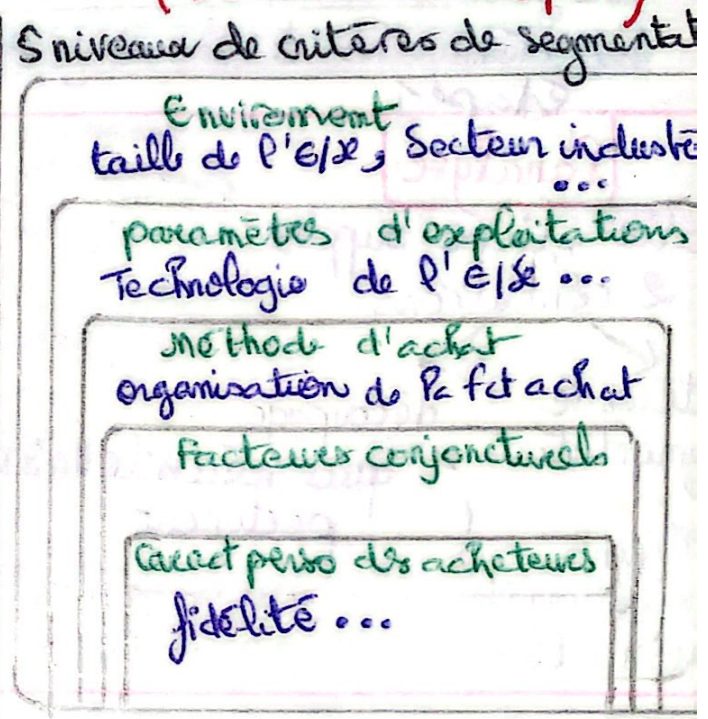 5 niveaux de critères de segmentat
Enviroment
taille de l'E/se, Secteur industr
...
paramètrs d'exploitations
Technologie de l'E/se ...
Méthode d'achat
organisation de la fct achat
Facteurs conjoncturels
Caract perso des acheteurs
fidélité ...